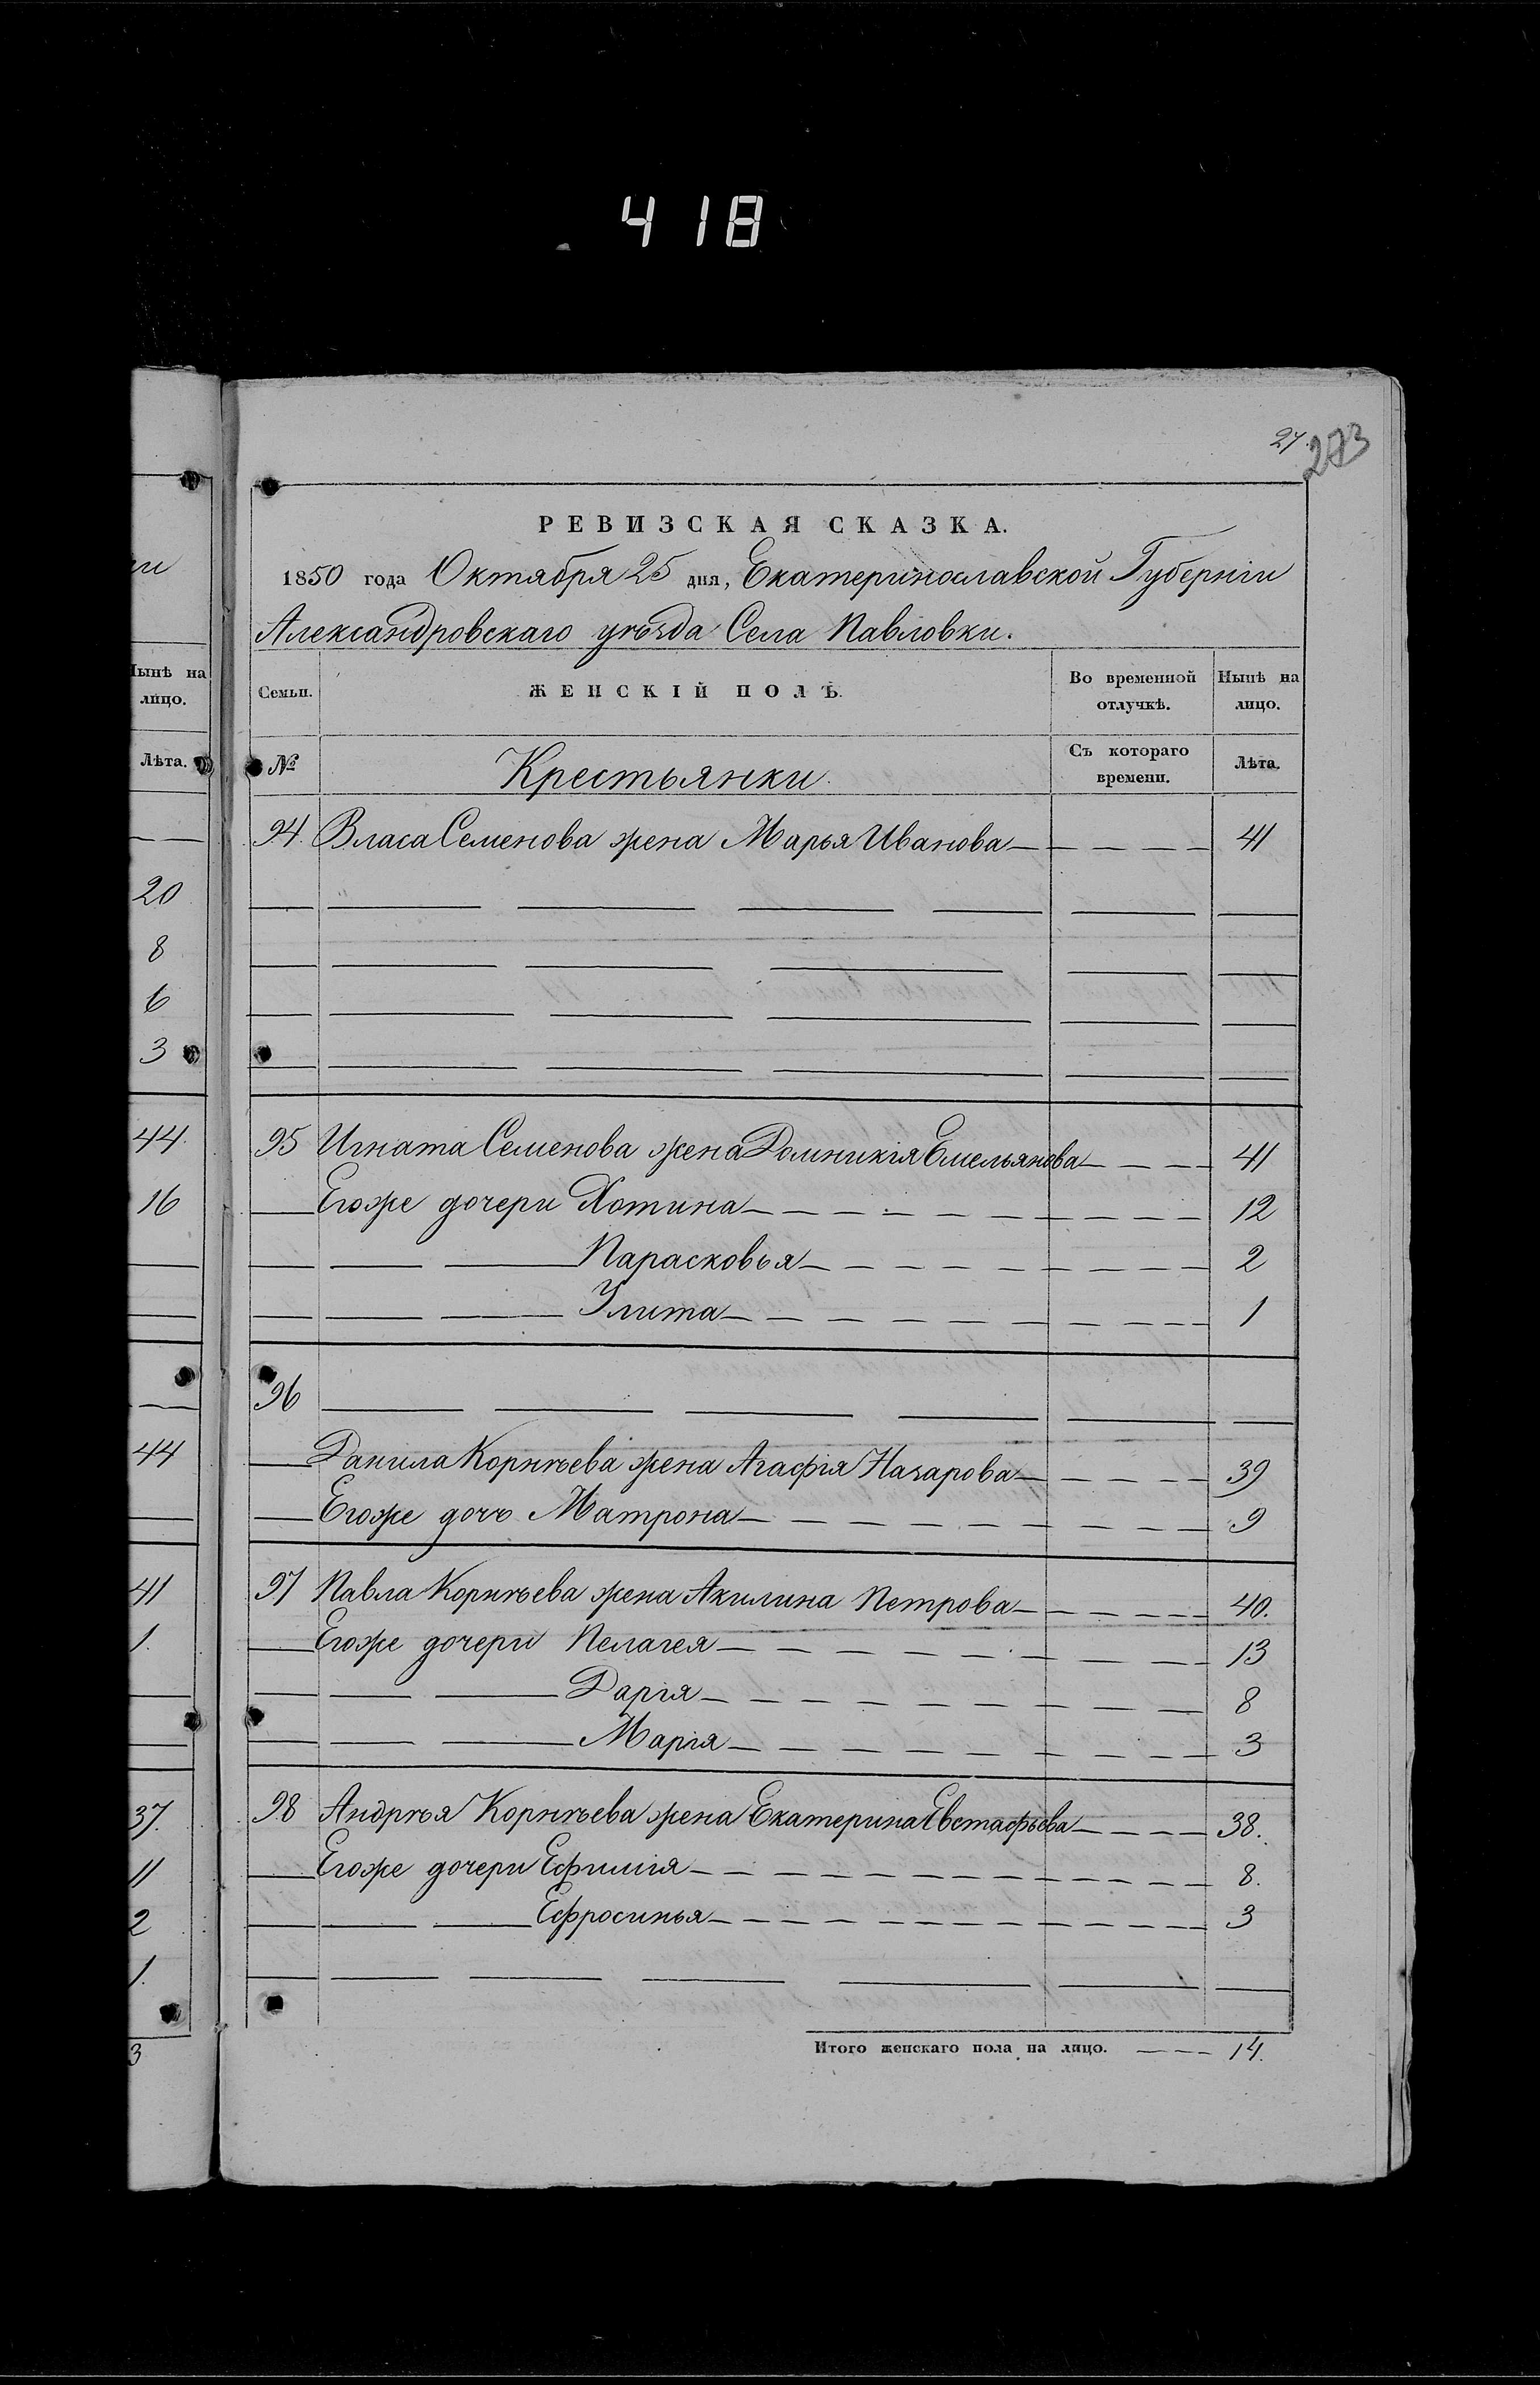 418
27.
273
РЕВИЗСКАЯ СКАЗКА.
1850 года Октября 25 дня, Екатеринославской Губерніи
Александровскаго уѣзда Села Павловки.
Семьи.
ЖЕНСКІЙ ПОЛЪ.
Во временной отлучкѣ.
Нынѣ на лицо.
№
Крестьянки.
Съ котораго времени.
Лѣта.
94. Власа Семенова жена Марья Иванова 41
95 Игната Семенова жена Домникія Емельянова 41
Егоже дочери Хотина 12
Парасковья 2
Улита 1
96
Данила Корнѣева жена Агафія Назарова 39
Егоже дочь Матрона 9
97 Павла Корнѣева жена Акилина Петрова 40.
Егоже дочери Пелагея 13
Дарія 8
Марія 3
98 Андрѣя Корнѣева жена Екатерина Евстафьева 38.
Егоже дочери Ефимія 8.
Ефросинья 3
Итого женскаго пола на лицо. 14.
ии
Нынѣ на
лицо.
Лѣта.
20
8
6
3
44.
16
44
41
1.
37.
11
2
1.
3